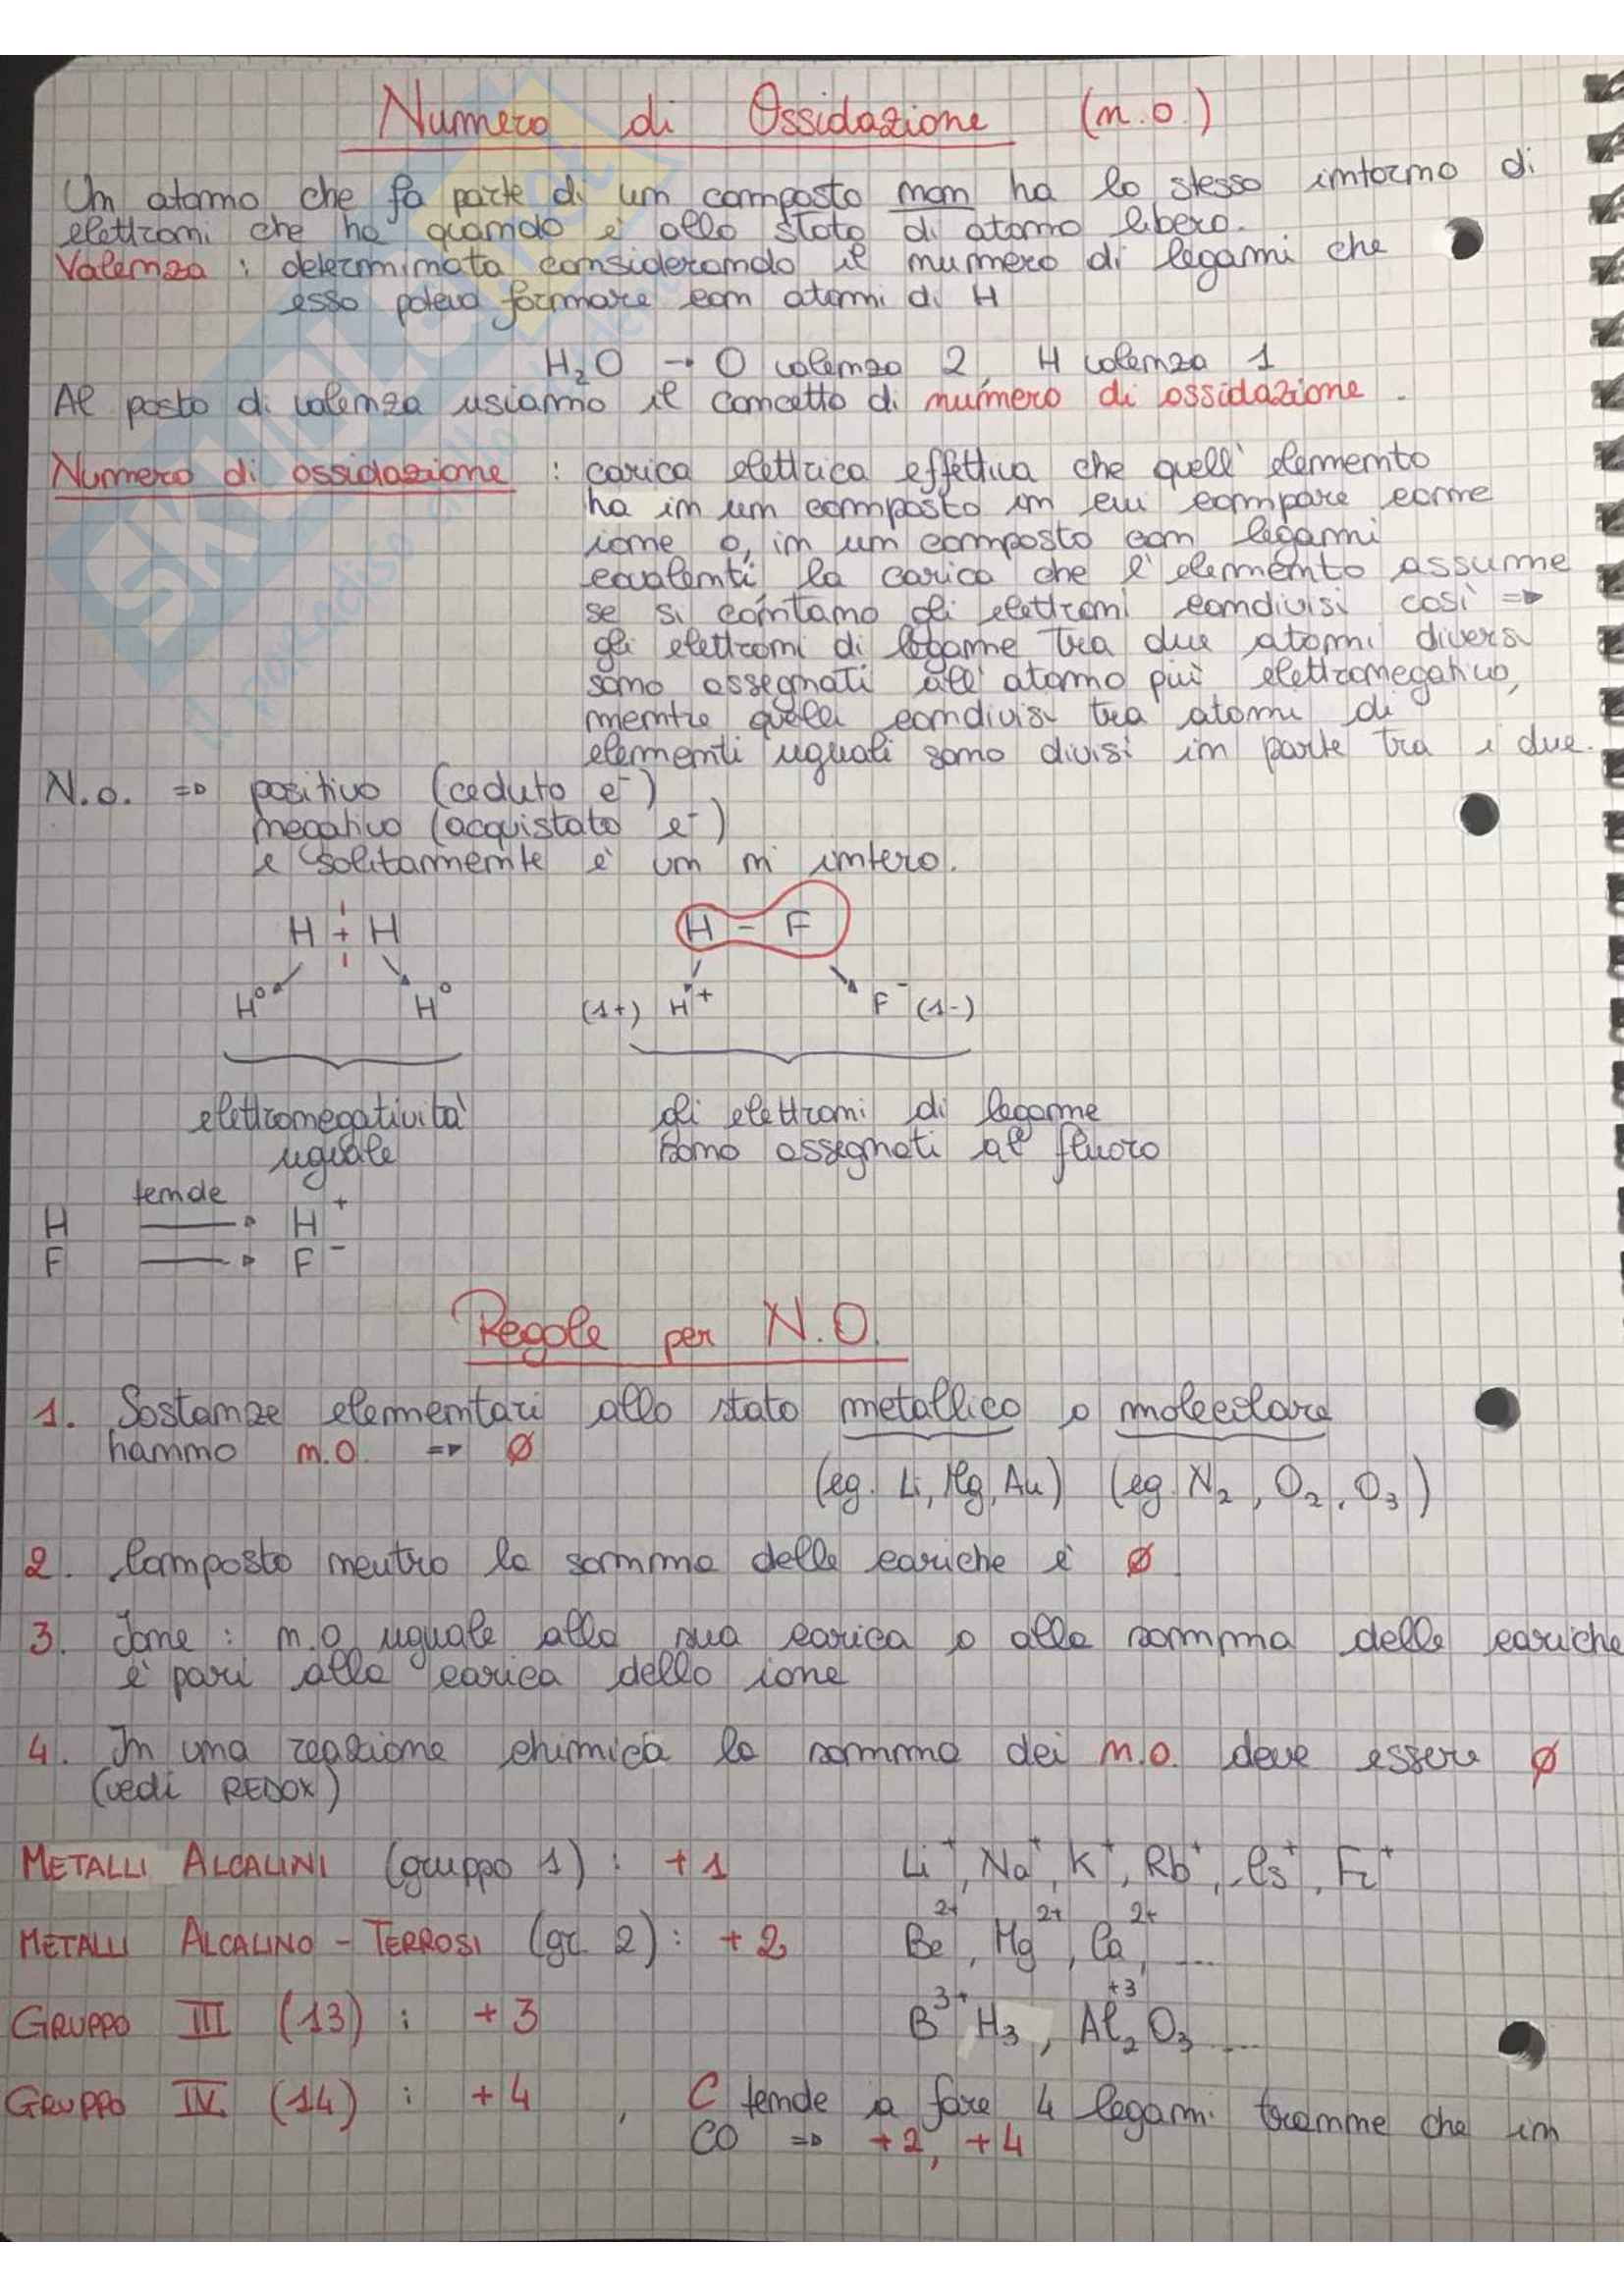 Numero di Ossidazione (n.o.)
Un atomo che fa parte di un composto non ha lo stesso intorno di
elettroni che ha quando è allo stato di atomo libero.
Valenza : determinata considerando il numero di legami che
esso poteva formare con atomi di H
H₂O → O valenza 2, H valenza 1
Al posto di valenza usiamo il concetto di numero di ossidazione.
Numero di ossidazione : carica elettrica effettiva che quell' elemento
ha in un composto in cui compare come
ione o, in un composto con legami
covalenti, la carica che l'elemento assume
se si contano gli elettroni condivisi così =>
gli elettroni di legame tra due atomi diversi
sono assegnati all' atomo più elettronegativo,
mentre quelli condivisi tra atomi di
elementi uguali sono divisi in parte tra i due.
N.o. => positivo (ceduto e⁻)
negativo (acquistato e⁻)
e solitamente è un n° intero.
H + H H - F
H⁰ H⁰ (1+) H⁺ F⁻ (1-)
elettronegatività gli elettroni di legame
uguale sono assegnati al fluoro
tende
H → H⁺
F → F⁻
Regole per N.O.
1. Sostanze elementari allo stato metallico o molecolare
hanno n.o. => Ø
(eg. Li, Mg, Au) (eg. N₂, O₂, O₃)
2. Composto neutro la somma delle cariche è Ø
3. Ione : n.o uguale alla sua carica o alla somma delle cariche
è pari alla carica dello ione
4. In una reazione chimica la somma dei n.o. deve essere Ø
(vedi REDOX)
METALLI ALCALINI (gruppo 1) : +1 Li⁺, Na⁺, K⁺, Rb⁺, Cs⁺, Fr⁺
METALLI ALCALINO - TERROSI (gr. 2) : +2 Be²⁺, Mg²⁺, Ca²⁺, ....
GRUPPO III (13) : +3 B³⁺H₃, Al₂⁺³O₃ ....
GRUPPO IV (14) : +4, C tende a fare 4 legami tranne che in
CO => +2, +4
SKUOLA